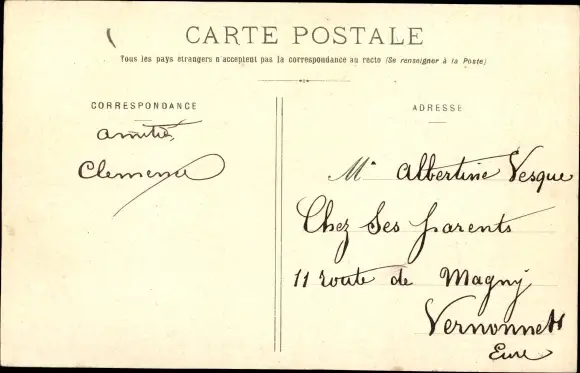 CARTE POSTALE
Tous les pays étrangers n'acceptent pas la correspondance au recto (Se renseigner à la Poste)
CORRESPONDANCE
amitié
Clemence
ADRESSE
Mlle Albertine Vesque
Chez Ses parents
11 route de Magny
Vernonnet
Eure